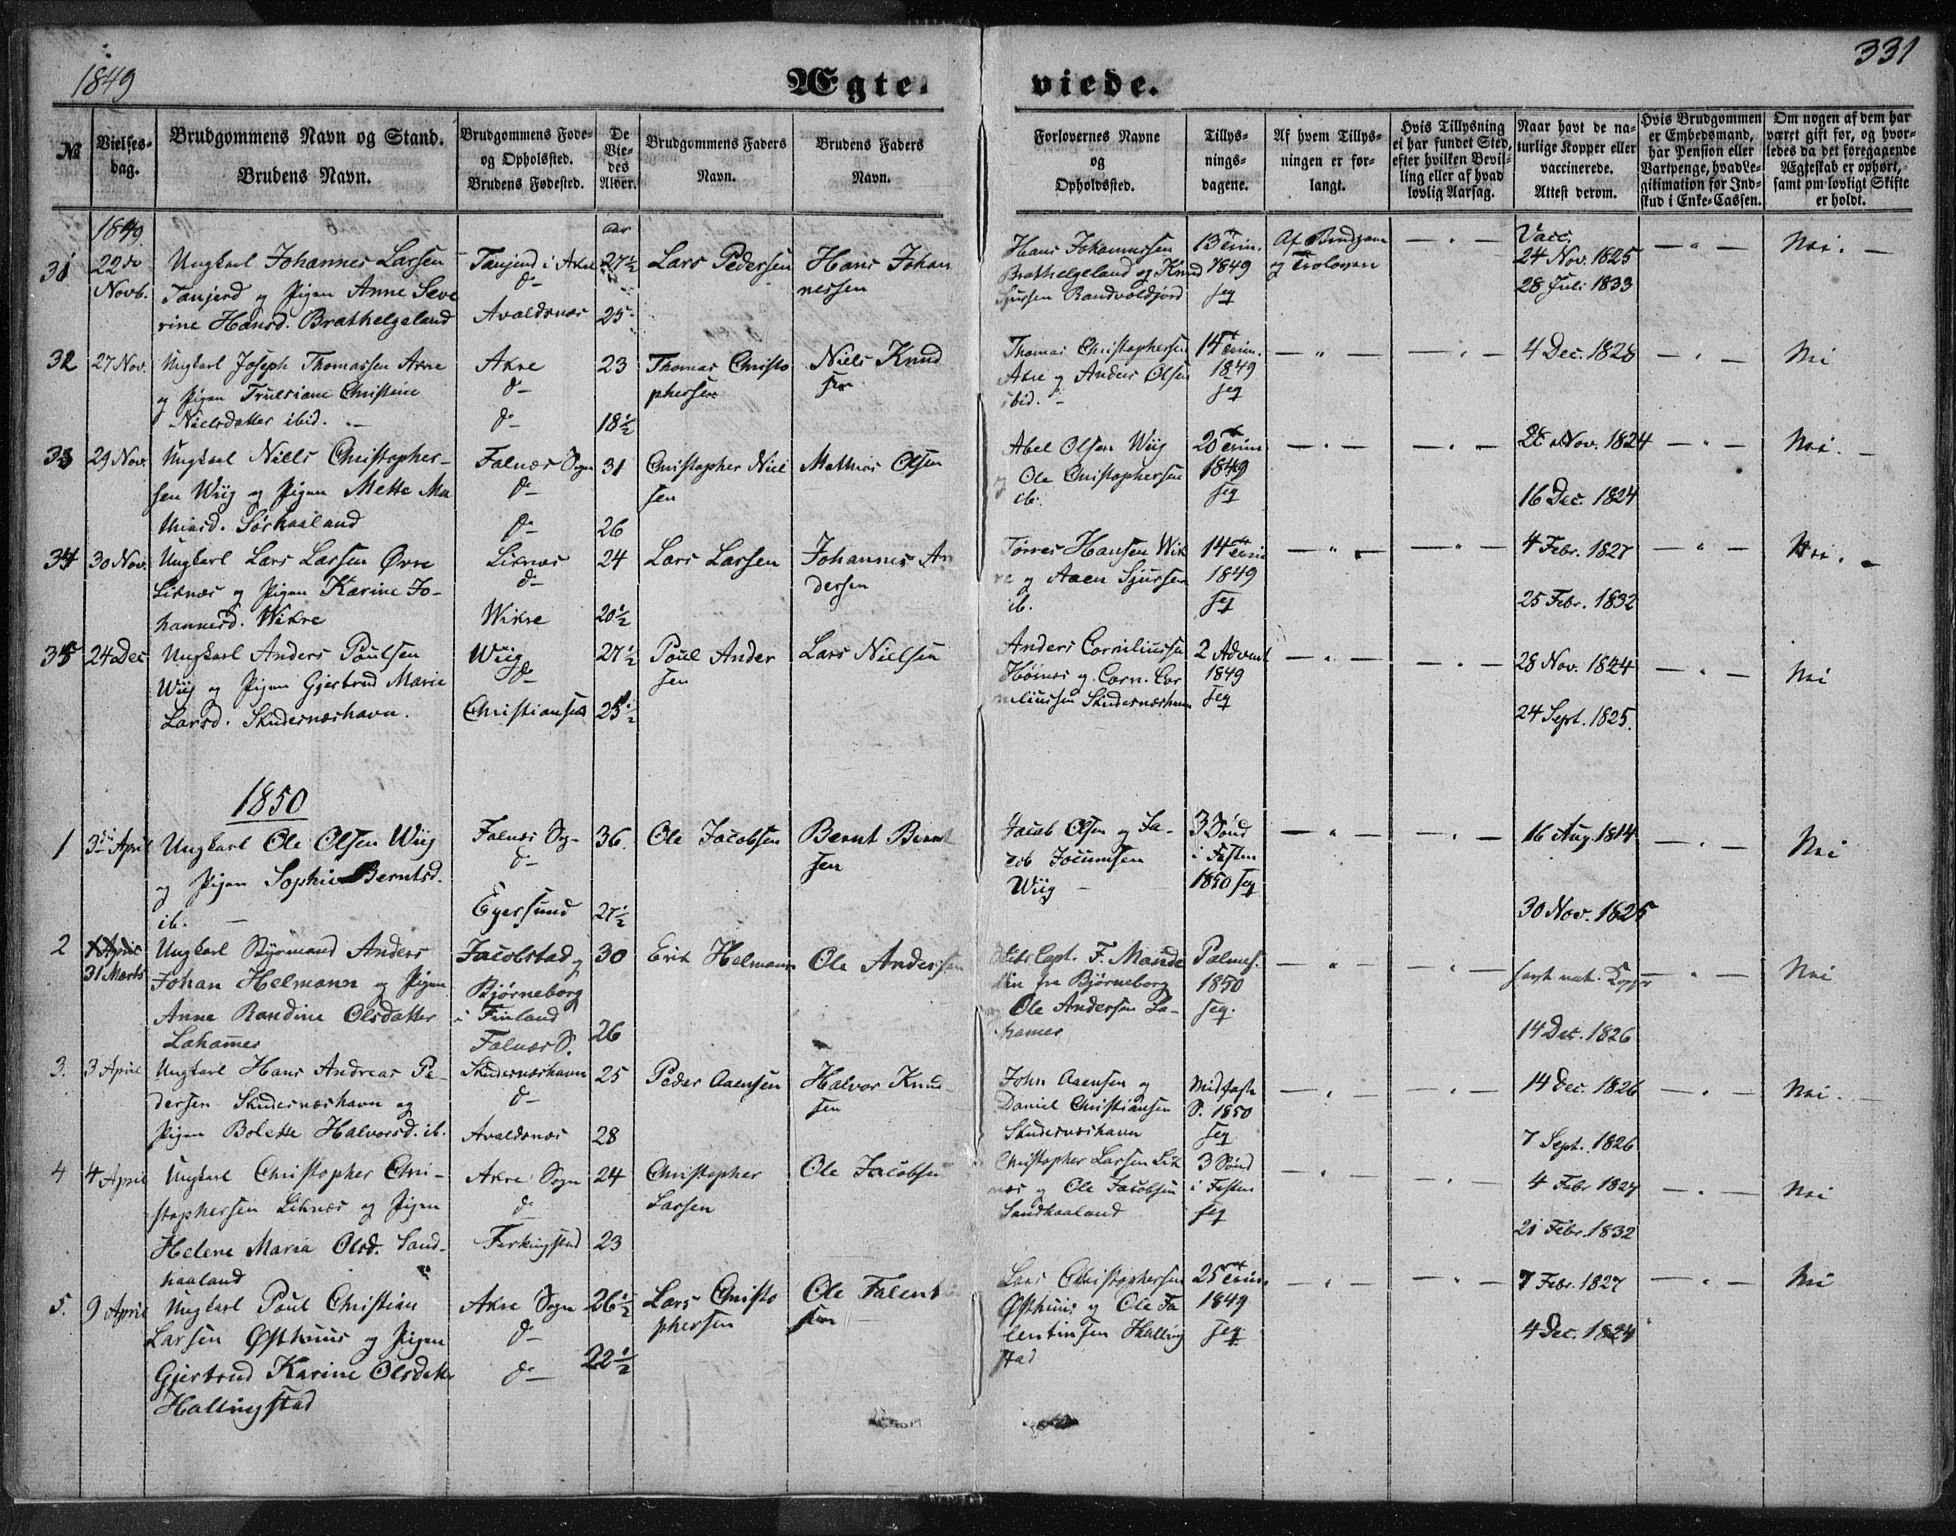 1849
Ægte-
viede.
331
№
Vielses-
dag.
Brudgommens Navn og Stand.
Brudens Navn.
Brudgommens Føde-
og Opholdssted.
Brudens Fødested.
De
Vie-
des
Alder.
Brudgommens Faders
Navn.
Brudens Faders
Navn.
Forlovernes Navne
og
Opholdssted.
Tillys-
nings-
dagene.
Af hvem Tillys-
ningen er for-
langt.
Hvis Tillysning
ei har fundet Sted,
efter hvilken Bevil-
ling eller af hvad
lovlig Aarsag.
Naar havt de na-
turlige Kopper eller
vaccinerede.
Attest derom.
Hvis Brudgommen
er Embedsmand,
har Pension eller
Vartpenge, hvad Le-
gitimation for Ind-
skud i Enke-Cassen.
Om nogen af dem har
været gift før, og hvor-
ledes da det foregagende
Ægteskab er ophørt,
samt om lovligt Skifte
er holdt.
1849.
31
22de
Novb.
Ungkarl Johannes Larsen
Tanjerd og Pigen Anne Seve
rine Hansd. Brathelgeland
Tanjerd i Akre
d-
Avaldsnæs
27½
25
Lars Pedersen
Hans Johan
nessen
Hans Johannessen
Brathelgeland og Knud
Sjursen
13 Trin.
1849
seq
Af Brudgom
og Forlovere
Vacc.
24 Nov. 1825
28 Juli 1833
Nei.
32
27 Nov.
Ungkarl Joseph Thomassen Akre
og Pigen Trulsiane Christine
Nielsdatter ibid.
Akre
d-
d-
23
18½
Thomas Christo
phersen
Niels Knud
sen
Thomas Christophersen
Akre og Anders Olsen
ibid.
14 Trin.
1849
seq
4 Dec. 1828
Nei
33
29 Nov.
Ungkarl Niels Christopher-
sen Wiig og Pigen Mette Ma
thiasd. Sørhaaland
Falnæs Sogn
d-
d-
31
26
Christopher Niel
sen
Mathias Olsen
Abel Olsen Wiig
og Ole Christophersen
ib.
20 Trin.
1849
seq
28 Nov. 1824
16 Dec. 1824
Nei.
34
30 Nov.
Ungkarl Lars Larsen Øvre
Liknæs og Pigen Karine Jo-
hannesd. Wikre
Liknæs
d-
Wikre
24
20½
Lars Larsen
Johannes An
dersen
Tørres Hansen Wik
re og Aaen Sjursen
ib.
14 Trin
1849
seq
4 Febr. 1827
25 Febr. 1832
Nei.
35
24 Dec
Ungkarl Anders Poulsen
Wiig og Pigen Gjertrud Marie
Larsd. Skudesnæshavn.
Wiig
d-
Christiansd
27½
25½
Poul Ander
sen
Lars Nielsen
Anders Corneliussen
Høines og Corn. Cor
neliussen Skudesnæshavn
2 Advent
1849
seq
28 Nov. 1824
24 Sept. 1825.
Nei
1850
1
3die April
Ungkarl Ole Olsen Wiig
og Pigen Sophie Berntsd.
ib.
Falnæs Sg-
d-
Egersund
36.
27½
Ole Jacobsen
Bernt Bernt
sen
Jacob Olsen og Ja-
cob Jocumsen
Wiig
3 Sønd
i Fasten
1850 seq
16 Aug. 1814
30 Nov. 1825
Nei
2
31 Marts
Ungkarl Styrmand Anders
Johan Helmann og Pigen
Anne Randine Olsdatter
Lahamer
Jacobstad og
Bjørneborg
i Finland
Falnæs S.
30
26
Erik Helmann
Ole Andersen
Skibs Capt. F. Mande
lin fra Bjørneborg
og Ole Andersen La-
hamer
Palmes.
1850
seq.
havt nat. Kopper
14 Dec. 1826
Nei
3.
3 April
Ungkarl Hans Andreas Pe-
dersen Skudesnæshavn og
Pigen Bolette Halvorsd. ib.
Skudesnæshavn
d-
Avaldsnæs
25
28
Peder Aaensen
Halvor Knud
sen
John Aaensen og
Daniel Christiansen
Skudesnæshavn
Midfaste
S. 1850
seq
14 Dec. 1826
7 Sept. 1826
Nei.
4
4 April
Ungkarl Christopher Chri-
stophersen Liknæs og Pigen
Helene Maria Olsd. Sand-
haaland
Akre Sogn
d-
Ferkingstad
24
23
Christopher
Larsen
Ole Jacobsen
Christopher Larsen Lik
næs og Ole Jacobsen
Sandhaaland
3 Sønd
i Fasten
seq
4 Febr 1827
21 Febr. 1832
Nei
5.
9 April
Ungkarl Poul Christian
Larsen Østhuus og Pigen
Gjertrud Karine Olsdatter
Hallingstad
Akre Sogn
d-
d-
26½
22½
Lars Christo
phersen
Ole Falent
sen
Lars Christophersen
Østhuus og Ole Fa
lentinsen Halling
stad
25 Trin.
1849
seq.
7 Febr. 1827
4 Dec. 1824
Nei